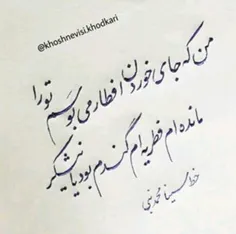 @khoshnevisi.khodkari
من که جای خوردن افطار می بوسم تو را
مانده ام فطریه ام گندم بود یا نیشکر
خط سینا محمدبنی